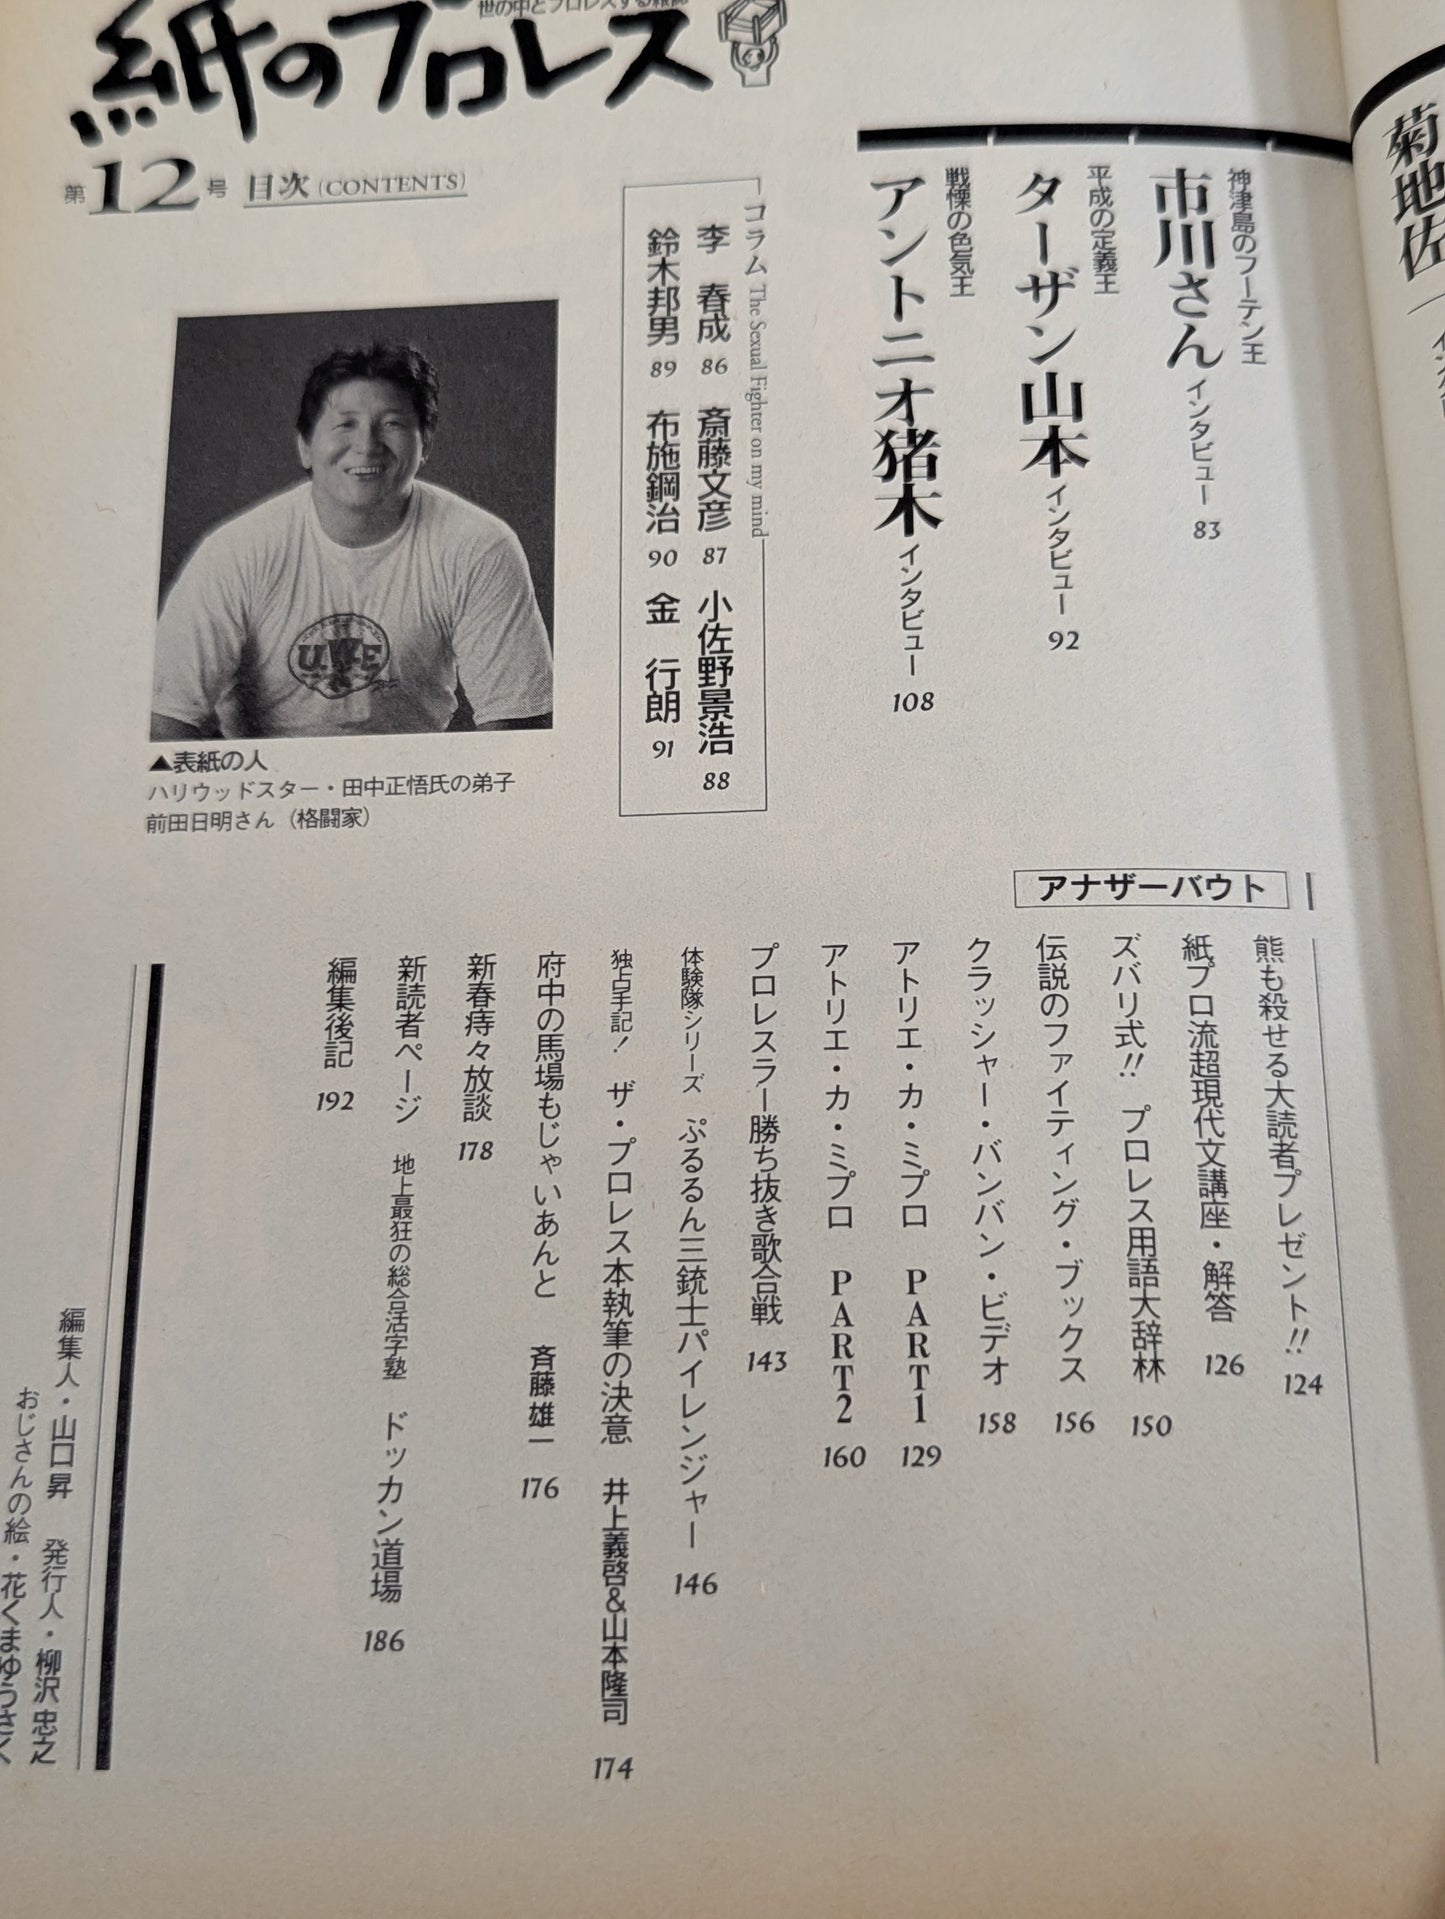 世の中とプロレスする雑誌
紙のプロレス
第12号 目次 (CONTENTS)
神津島のフーテン王
市川さん インタビュー 83
平成の定義王
ターザン山本 インタビュー 92
戦慄の色気王
アントニオ猪木 インタビュー 108
コラム The Sexual Fighter on my mind
李 春成 86 斎藤文彦 87 小佐野景浩 88
鈴木邦男 89 布施鋼治 90 金 行朗 91
▲表紙の人
ハリウッドスター・田中正悟氏の弟子
前田日明さん（格闘家）
UWF
アナザーバウト
熊も殺せる大読者プレゼント!! 124
紙プロ流超現代文講座・解答 126
ズバリ式!! プロレス用語大辞林 150
伝説のファイティング・ブックス 156
クラッシャー・バンバン・ビデオ 158
アトリエ・カ・ミプロ PART1 129
アトリエ・カ・ミプロ PART2 160
プロレスラー勝ち抜き歌合戦 143
体験隊シリーズ ぷるるん三銃士パイレンジャー 146
独占手記! ザ・プロレス本執筆の決意 井上義啓&山本隆司 174
府中の馬場もじゃいあんと 斉藤雄一 176
新春痔々放談 178
新読者ページ 地上最狂の総合活字塾 ドッカン道場 186
編集後記 192
編集人・山口 昇 発行人・柳沢忠之
おじさんの絵・花くまゆうさく
菊地佐